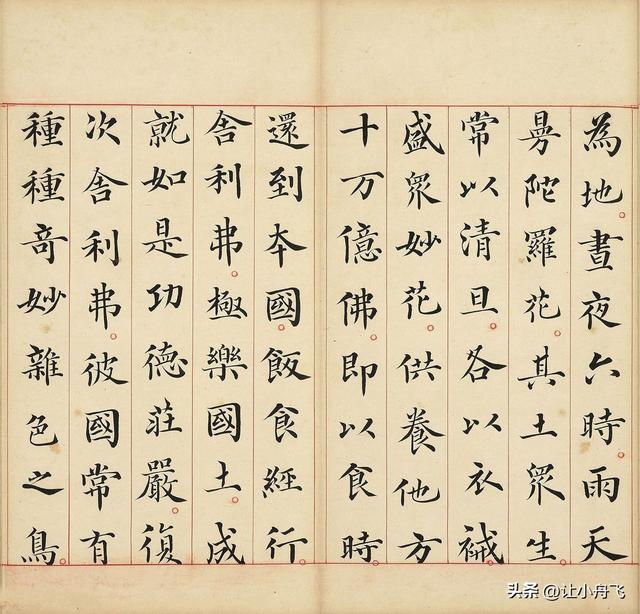 為地晝夜六時雨天
曼陀羅花其土眾生
常以清旦各以衣祴
盛眾妙花供養他方
十万億佛即以食時
還到本國飯食經行
舍利弗極樂國土成
就如是功德莊嚴復
次舍利弗彼國常有
種種奇妙雜色之鳥
头条 @让小舟飞